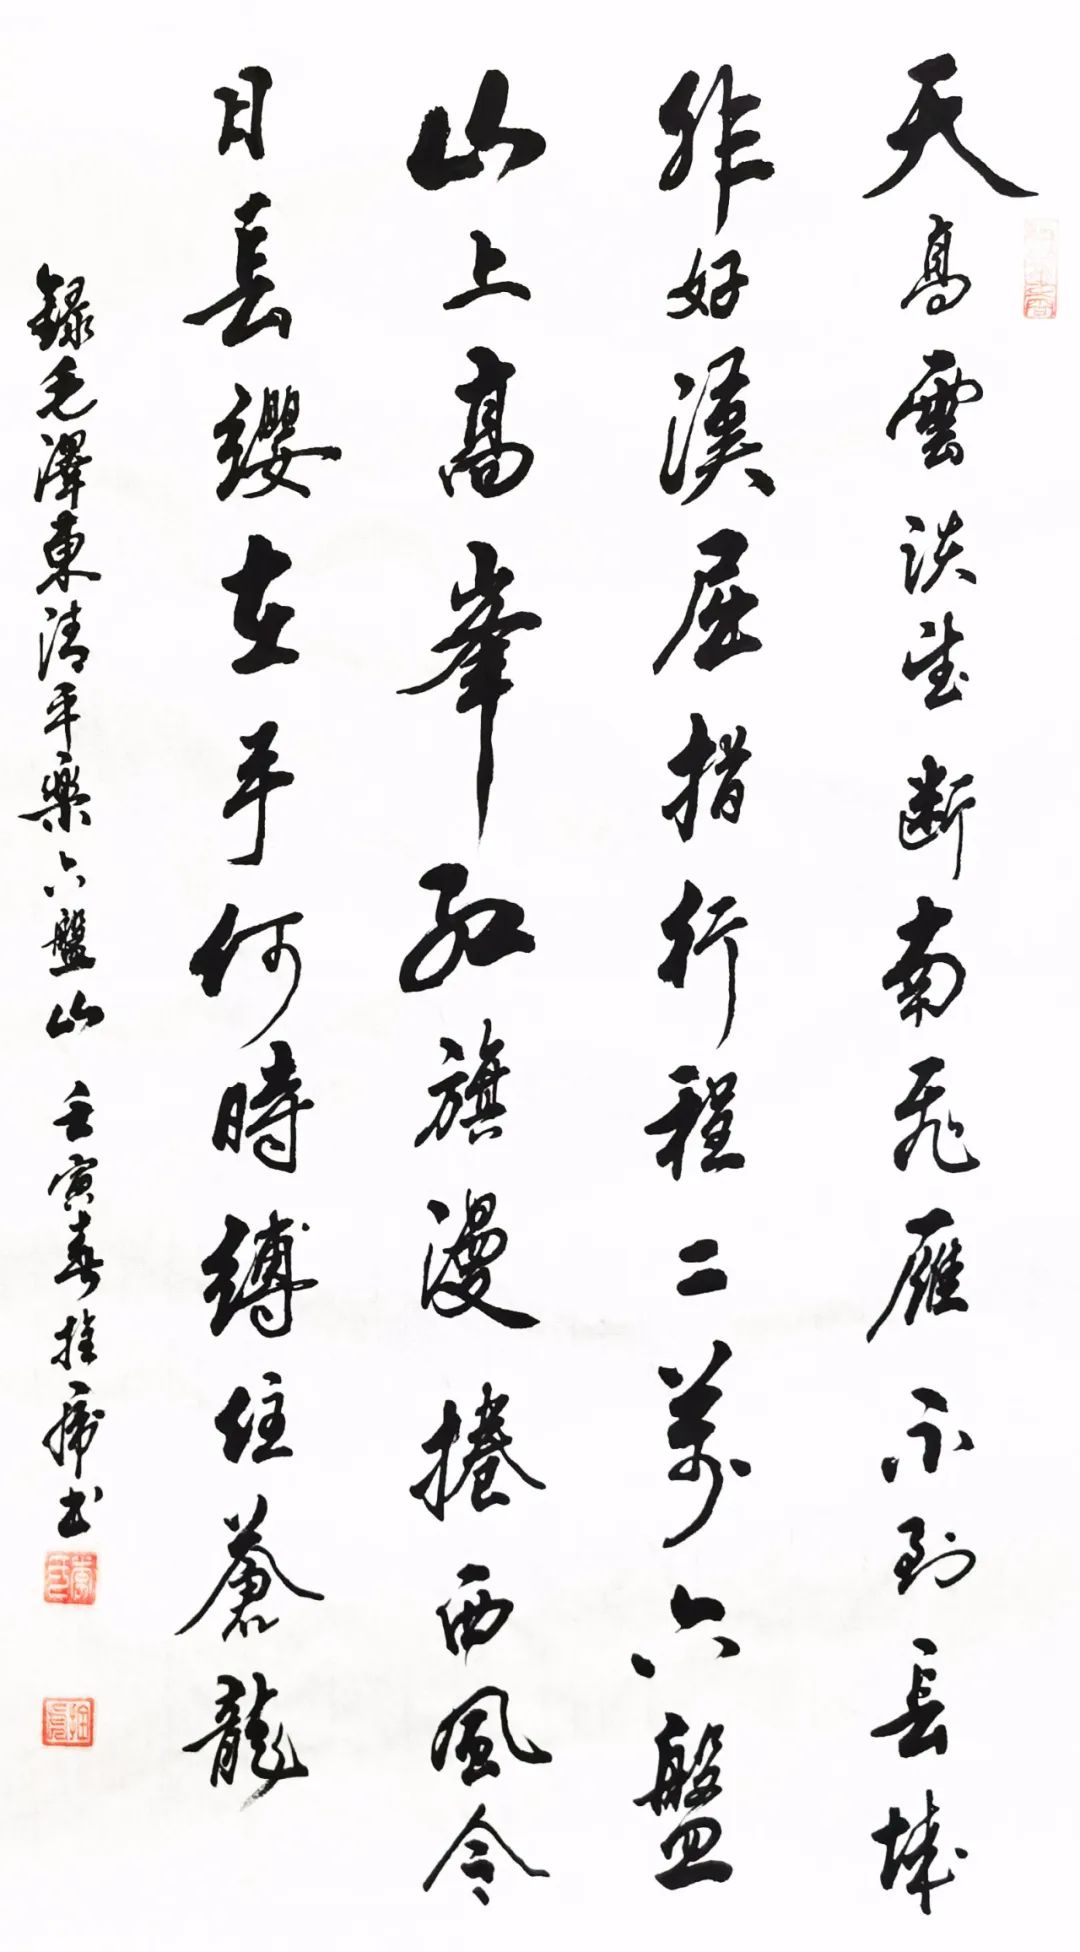 天高雲淡望斷南飛雁不到長城
非好漢屈指行程二萬六盤
山上高峯紅旗漫捲西風今
日長纓在手何時縛住蒼龍
錄毛澤東清平樂六盤山 壬寅春拴虎书